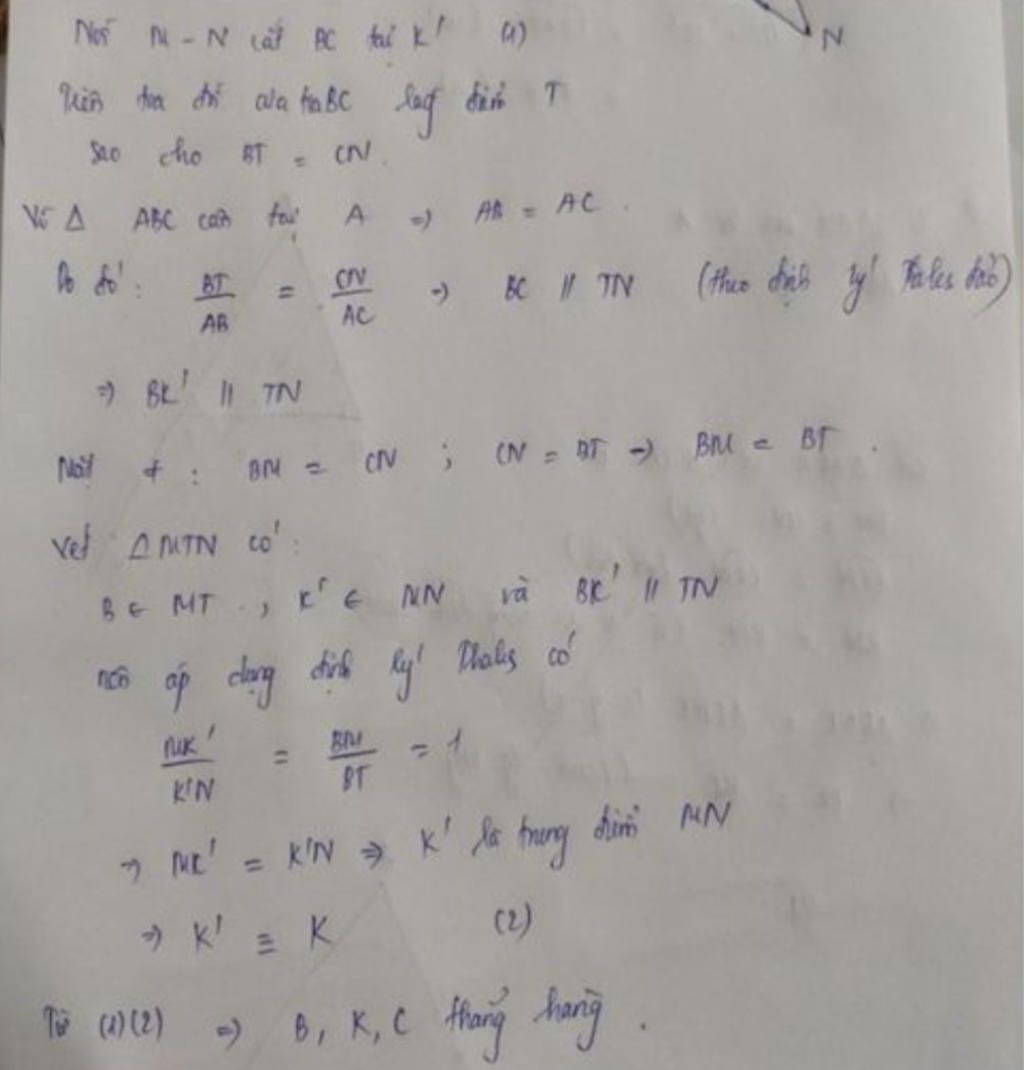 N
Nối M - N cắt BC tại K' (1)
Trên tia đối của tia BC lấy điểm T
sao cho BT = CN.
Vì Δ ABC cân tại A => AB = AC.
Do đó: BT/AB = CN/AC -> BC // TN (theo định lý Tales đảo)
=> BK' // TN
Mặt ≠ : BM = CN ; CN = BT -> BM = BT.
Xét Δ MTN có:
B ∈ MT, K' ∈ MN và BK' // TN
nên áp dụng định lý Thales có
MK'/K'N = BM/BT = 1
-> MK' = K'N => K' là trung điểm MN
-> K' ≡ K (2)
Từ (1)(2) => B, K, C thẳng hàng.